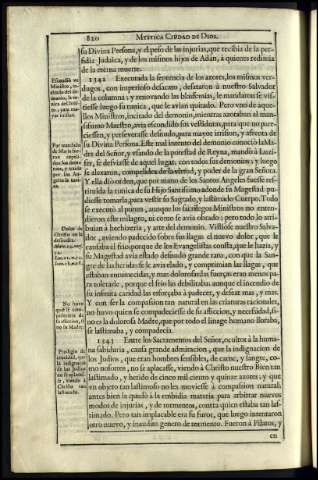 820 MYSTICA CIUDAD DE DIOS.
su Divina Persona, y el peso de las injurias, que recibia de la per-
fidia Judaica, y de los mismos hijos de Adàn, à quienes redimia
de la eterna muerte.
1342 Executada la sentencia de los azotes, los mismos ver-
dugos, con imperioso desacato, desataron à nuestro Salvador
de la columna, y renovando las blasfemias, le mandaron se vis-
tiesse luego su tunica, que le avian quitado. Pero uno de aque-
llos Ministros, incitado del demonio, mientras azotaban al man-
sissimo Maestro, avia escondido sus vestiduras, para que no pare-
ciessen, y perseverasse desnudo, para mayor irrision, y afrenta de
su Divina Persona. Este mal intento del demonio conociò la Ma-
dre del Señor, y vsando de la potestad de Reyna, mandò à Luzi-
fer, se desviasse de aquel lugar, con todos sus demonios; y luego
se alexaron, compelidos de la virtud, y poder de la gran Señora.
Y ella diò orden, que por mano de los Santos Angeles fuesse res-
tituida la tunica de su Hijo Santissimo adonde su Magestad pu-
diesse tomarla, para vestir su Sagrado, y lastimado Cuerpo. Todo
se executò al punto, aunque los sacrilegos Ministros no enten-
dieron este milagro, ni como se avia obrado; pero todo lo atri-
buian à hechizeria, y arte del demonio. Vistiòse nuestro Salva-
dor, aviendo padecido sobre sus llagas el nuevo dolor, que le
causaba el frio, porque de los Evangelistas consta, que le hazia, y
su Magestad avia estado desnudo grande rato, con que la San-
gre de las heridas se le avia elado, y comprimian las llagas, que
estaban entumecidas, y mas dolorosas: las fuerças eran menos pa-
ra tolerarle, porque el frio las debilitaba, aunque el incendio de
su infinita caridad las esforçaba à padecer, y desear mas, y mas.
Y con ser la compassion tan natural en las criaturas racionales,
no huvo quien se compadeciesse de su afliccion, y necessidad, si-
no es la dolorosa Madre, que por todo el linage humano lloraba,
se lastimaba, y compadecia.
1343 Entre los Sacramentos del Señor, ocultos à la huma-
na sabiduria, causa grande admiracion, que la indignacion de
los Judios, que eran hombres sensibles, de carne, y sangre, co-
mo nosotros, no se aplacasse, viendo à Christo nuestro Bien tan
lastimado, y herido de cinco mil ciento y quinze azotes; y que
vn objeto tan lastimoso no les moviesse à compassion natural;
antes bien le quedò à la embidia materia para arbitrar nuevos
modos de injurias, y de tormentos, contra quien estaba tan las-
timado. Pero tan implacable era su furor, que luego intentaron
otro nuevo, y inaudito genero de tormento. Fueron à Pilatos, y
en